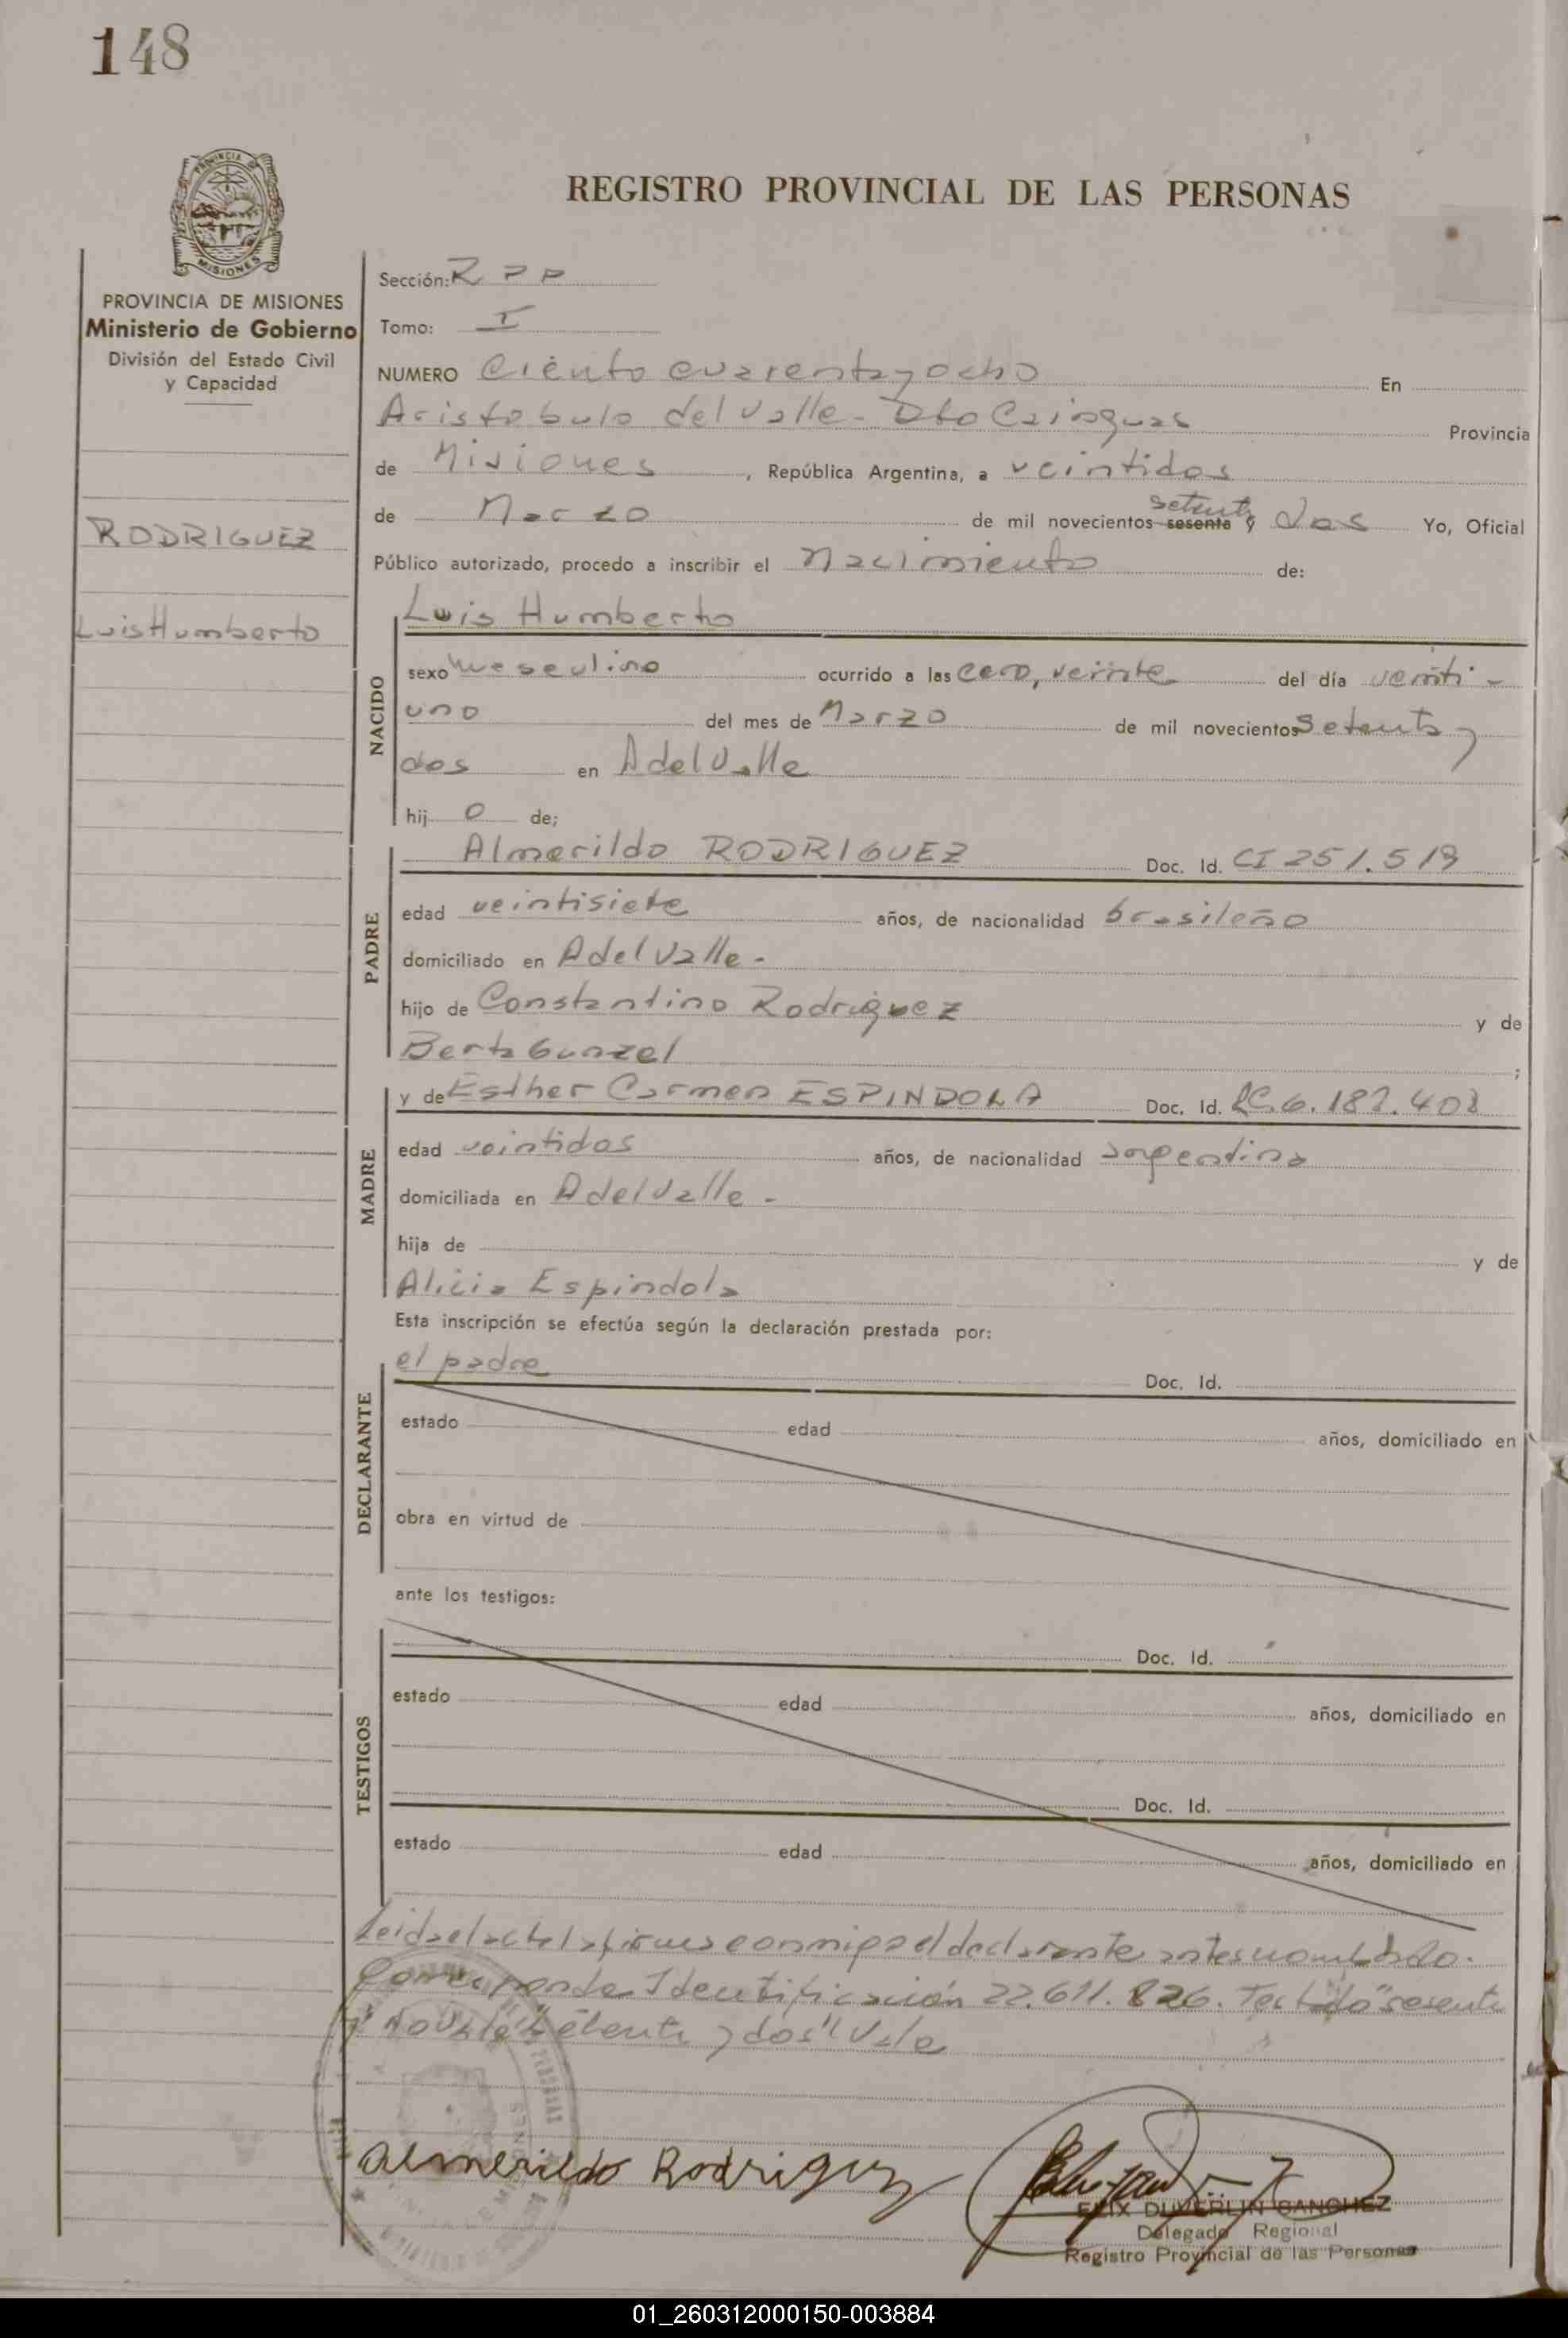 148
REGISTRO PROVINCIAL DE LAS PERSONAS
PROVINCIA DE MISIONES
Ministerio de Gobierno
División del Estado Civil
y Capacidad
RODRIGUEZ
Luis Humberto
Sección: R P P
Tomo: I
NUMERO Ciento cuarenta y ocho En
Aristobulo del Valle - Dto Cainguas Provincia
de Misiones, República Argentina, a veintidos
setenta
de Marzo de mil novecientos sesenta y dos Yo, Oficial
Público autorizado, procedo a inscribir el nacimiento de:
Luis Humberto
NACIDO
sexo masculino ocurrido a las cero, veinte del día veinti-
uno del mes de Marzo de mil novecientos setenta y
dos en A del Valle
hij o de;
PADRE
Almerildo RODRIGUEZ Doc. Id. CI 251.519
edad veintisiete años, de nacionalidad brasileño
domiciliado en A del Valle -
hijo de Constantino Rodriguez y de
Berta Gunzel ;
MADRE
y de Esther Carmen ESPINDOLA Doc. Id. LC. 6.182.408
edad veintidos años, de nacionalidad argentina
domiciliada en A del Valle -
hija de y de
Alicia Espindola
Esta inscripción se efectúa según la declaración prestada por:
DECLARANTE
el padre Doc. Id.
estado edad años, domiciliado en
obra en virtud de
ante los testigos:
TESTIGOS
Doc. Id.
estado edad años, domiciliado en
Doc. Id.
estado edad años, domiciliado en
Leida el acta la firma conmigo el declarante antes nombrado.
Corresponde Identificación 22.611.826. Testado "sesenta
y dos" Vale
Almerildo Rodriguez
FELIX DUVERLIN SANCHEZ
Delegado Regional
Registro Provincial de las Personas
01_260312000150-003884